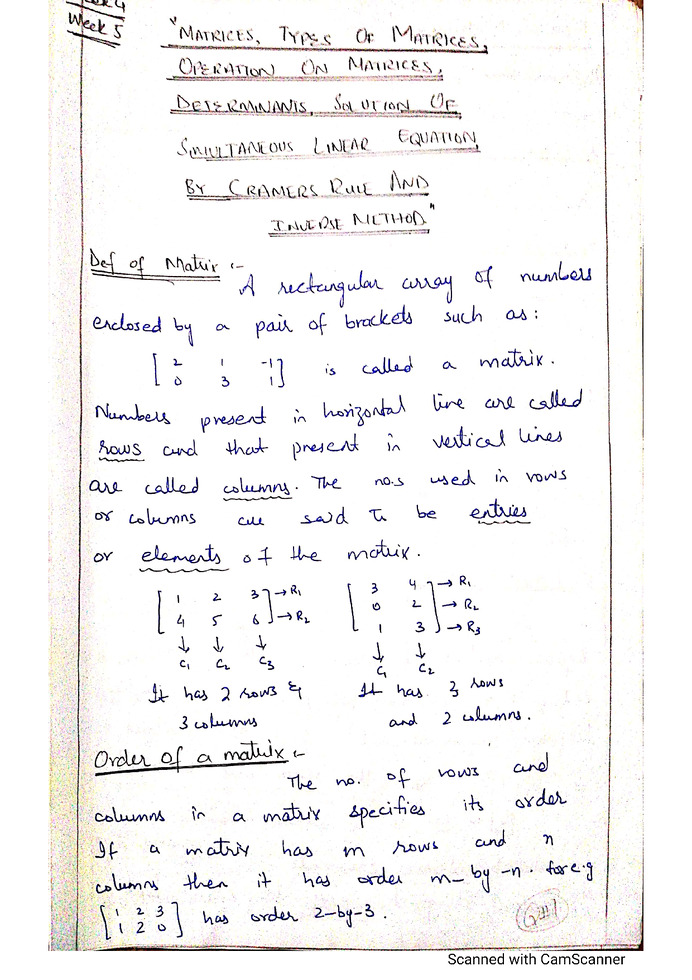 Week 4
Week 5
"MATRICES, TYPES OF MATRICES,
OPERATION ON MATRICES,
DETERMINANTS, SOLUTION OF
SIMULTANEOUS LINEAR EQUATION,
BY CRAMERS RULE AND
INVERSE METHOD"
Def of Matrix :-
A rectangular array of numbers
enclosed by a pair of brackets such as :
[ 2 1 -1
0 3 1 ] is called a matrix.
Numbers present in horizontal line are called
rows and that present in vertical lines
are called columns. The no.s used in rows
or columns are said to be entries
or elements of the matrix.
[ 1 2 3 ] → R1 [ 3 4 ] → R1
4 5 6 → R2 0 2 → R2
1 3 → R3
↓ ↓ ↓ ↓ ↓
C1 C2 C3 C1 C2
It has 2 rows & It has 3 rows
3 columns and 2 columns.
Order of a matrix :-
The no. of rows and
columns in a matrix specifies its order
If a matrix has m rows and n
columns then it has order m-by-n. for e.g
[ 1 2 3
1 2 0 ] has order 2-by-3.
Scanned with CamScanner